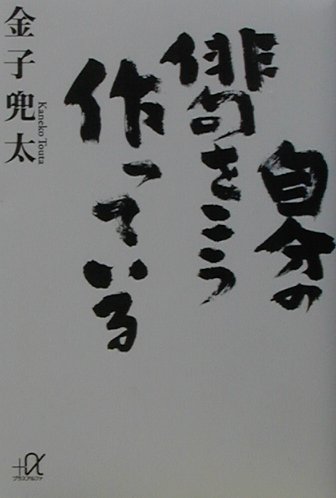 自分の
俳句をこう
作っている
金子兜太
Kaneko Touta
+α
プラスアルファ